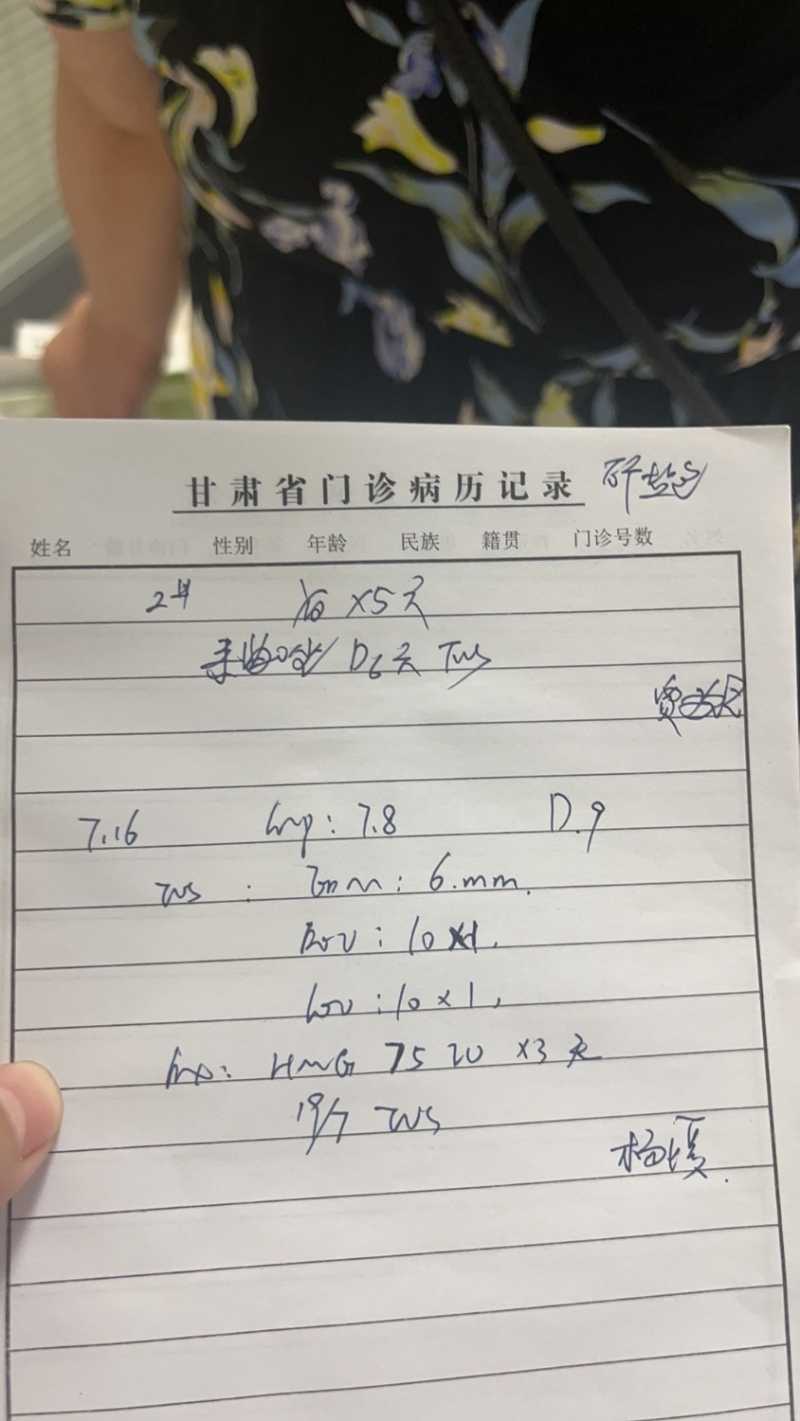 甘肃省门诊病历记录
姓名 性别 年龄 民族 籍贯 门诊号数
2# 每 ×5天
来曲唑 D6天 TVS
7.16 Lmp: 7.8 D.9
TVS : Em: 6.mm.
Rov: 10×1.
Lov: 10×1,
HMG 75 IU ×3天
19/7 TVS